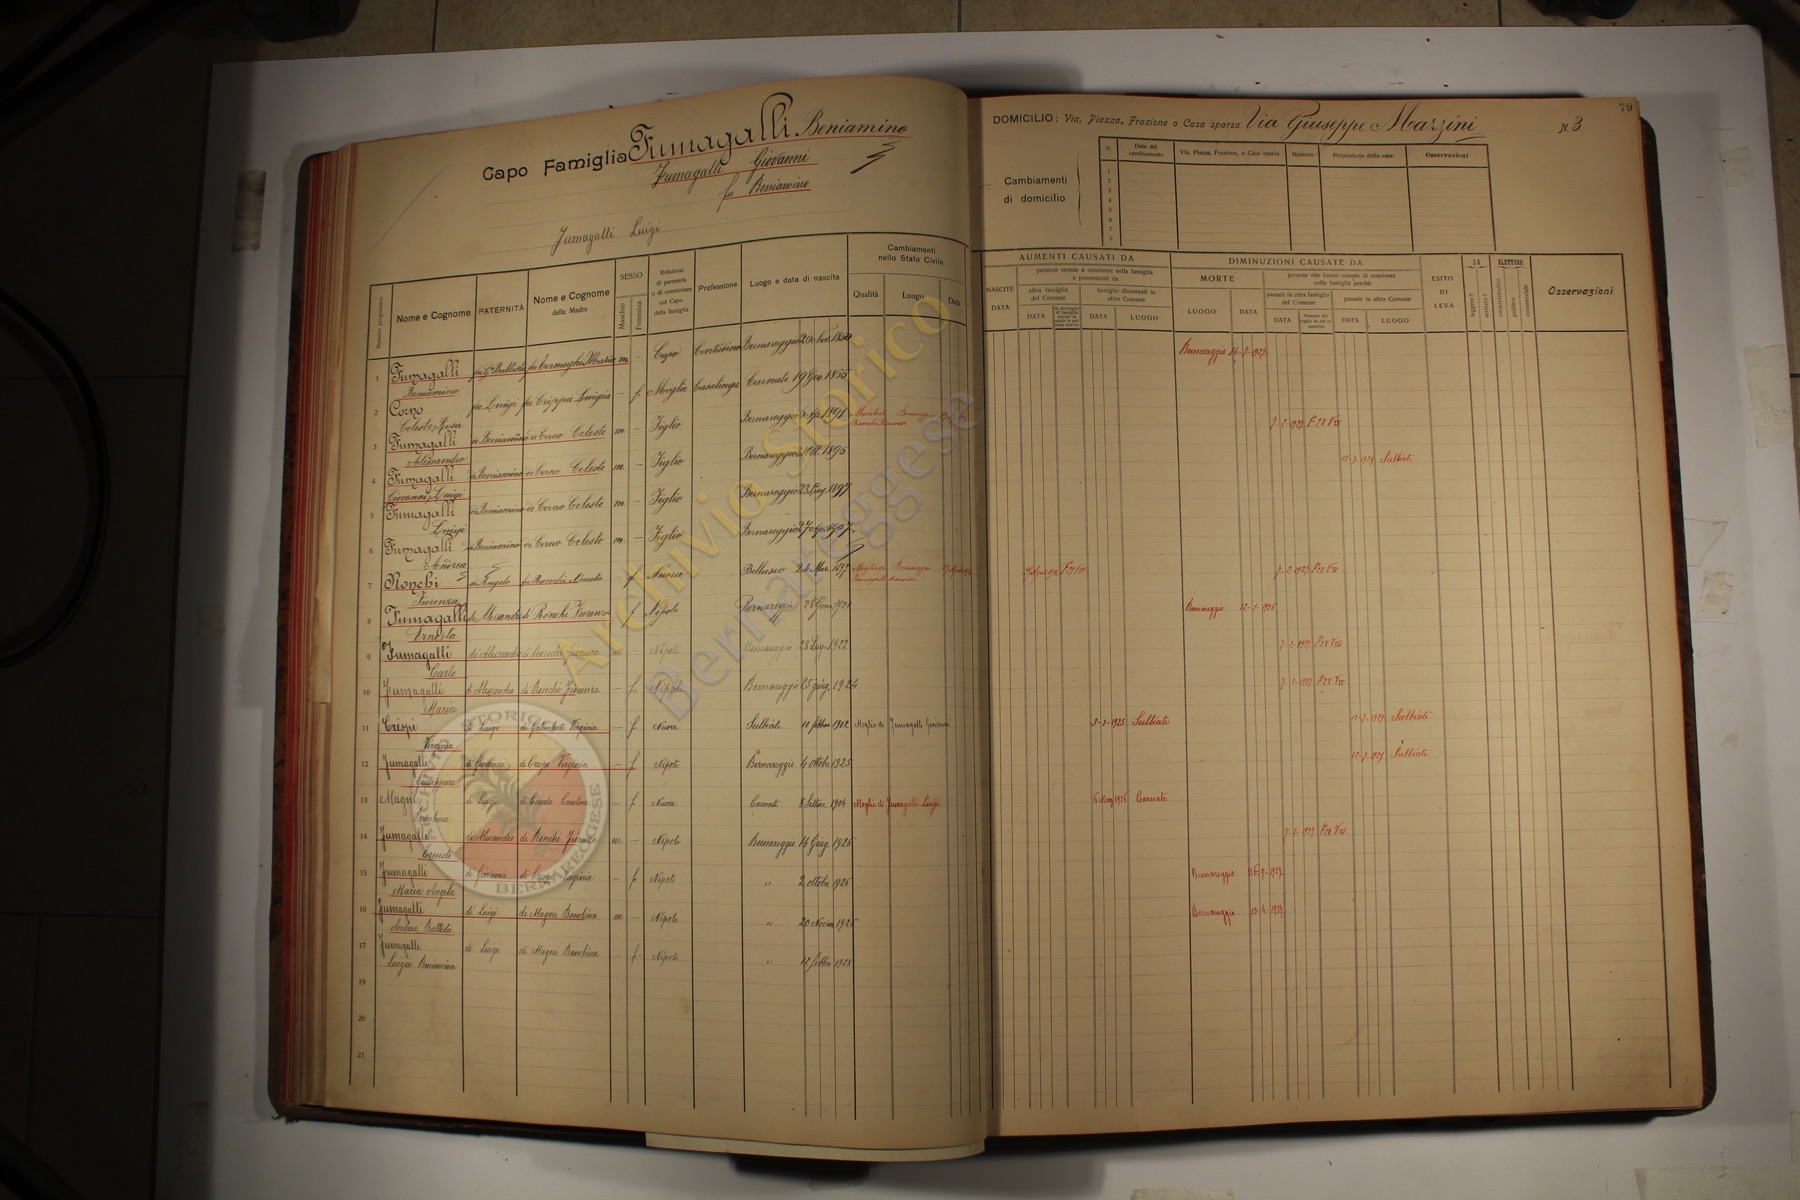 79
Capo Famiglia Fumagalli Beniamino
Fumagalli Giovanni
fu Beniamino
Fumagalli Luigi
DOMICILIO: Via, Piazza, Frazione o Casa sparsa Via Giuseppe Mazzini N. 3
Cambiamenti di domicilio
N. Data del cambiamento Via, Piazza, Frazione, o Casa sparsa Numero Proprietario della casa Osservazioni
1
2
3
4
5
6
7
8
Numero progressivo Nome e Cognome PATERNITÀ Nome e Cognome della Madre SESSO Maschio Femmina Relazione di parentela o di convivenza col Capo della famiglia Professione Luogo e data di nascita Cambiamenti nello Stato Civile Qualità Luogo Data
NASCITE DATA AUMENTI CAUSATI DA persone venute a convivere nella famiglia e provenienti da altra famiglia del Comune DATA famiglie dimoranti in altro Comune DATA LUOGO
DIMINUZIONI CAUSATE DA MORTE LUOGO DATA persone che hanno cessato di convivere colla famiglia perchè passate in altra famiglia del Comune DATA passate in altro Comune DATA LUOGO
ESITO DI LEVA SA leggere? scrivere? ELETTORE amministrativo politico commerciale Osservazioni
1 Fumagalli Beniamino fu Gio Battista fu Cornaghi Maria m. — Capo Contadino Bernareggio 20 Nov. 1850 Bernareggio 14-7-1927
2 Corno Celeste Rosa fu Luigi fu Crippa Luigia — f. Moglie Casalinga Carnate 19 Gen. 1855
3 Fumagalli Alessandro di Beniamino di Corno Celeste m. — Figlio Bernareggio 1891 Bernareggio 7-2-1927 F. 28 V
4 Fumagalli Giovanni Luigi di Beniamino di Corno Celeste m. — Figlio Bernareggio Ott. 1895 12-7-1929 Sulbiate
5 Fumagalli Luigi di Beniamino di Corno Celeste m. — Figlio Bernareggio 23 Lug. 1897
6 Fumagalli Andrea di Beniamino di Corno Celeste m. — Figlio Bernareggio 27 Ap. 1907
7 Ronchi Fiorenza di Angelo f. Nuora Bellusco 24 Mar. 1897 7-2-1927 F. 28 V
8 Fumagalli Ernesta di Alessandro di Ronchi Fiorenza f. Nipote Bernareggio 28 Genn. 1921 Bernareggio 12-1-1926
9 Fumagalli Carlo di Alessandro di Ronchi Fiorenza m. — Nipoti Bernareggio 28 Lug. 1922 7-2-1927 F. 28 V
10 Fumagalli Maria di Alessandro di Ronchi Fiorenza — f. Nipoti Bernareggio 25 giug. 1924 7-2-1927 F. 28 V
11 Crispi Virginia di Luigi di Galimberti Virginia — f. Nuora Sulbiate 10 febbr. 1902 Moglie di Fumagalli Giovanni 3-1-1925 Sulbiate 12-7-1929 Sulbiate
12 Fumagalli Giuseppina di Giovanni di Crespi Virginia — f. Nipoti Bernareggio 4 ottobre 1925 12-7-1929 Sulbiate
13 Magni Bambina di Luigi di Careda Carolina — f. Nuora Carnate 8 Settem. 1904 Moglie di Fumagalli Luigi 6 Mag. 1926 Carnate
14 Fumagalli Ernesto di Alessandro di Ronchi Fiorenza m. — Nipoti Bernareggio 14 Giug. 1926 7-2-1927 F. 28 V
15 Fumagalli Maria Angela di Giovanni di Crespi Virginia — f. Nipoti " 2 ottobre 1926 Bernareggio
16 Fumagalli Andrea Battista di Luigi di Magni Bambina m. — Nipoti " 20 Novem. 1926 Bernareggio
17 Fumagalli Luigia Beniamina di Luigi di Magni Bambina — f. Nipoti " 12 febbr. 1928
19
20
21
Archivio Storico
Bernareggese
ARCHIVIO STORICO
BERNAREGGESE